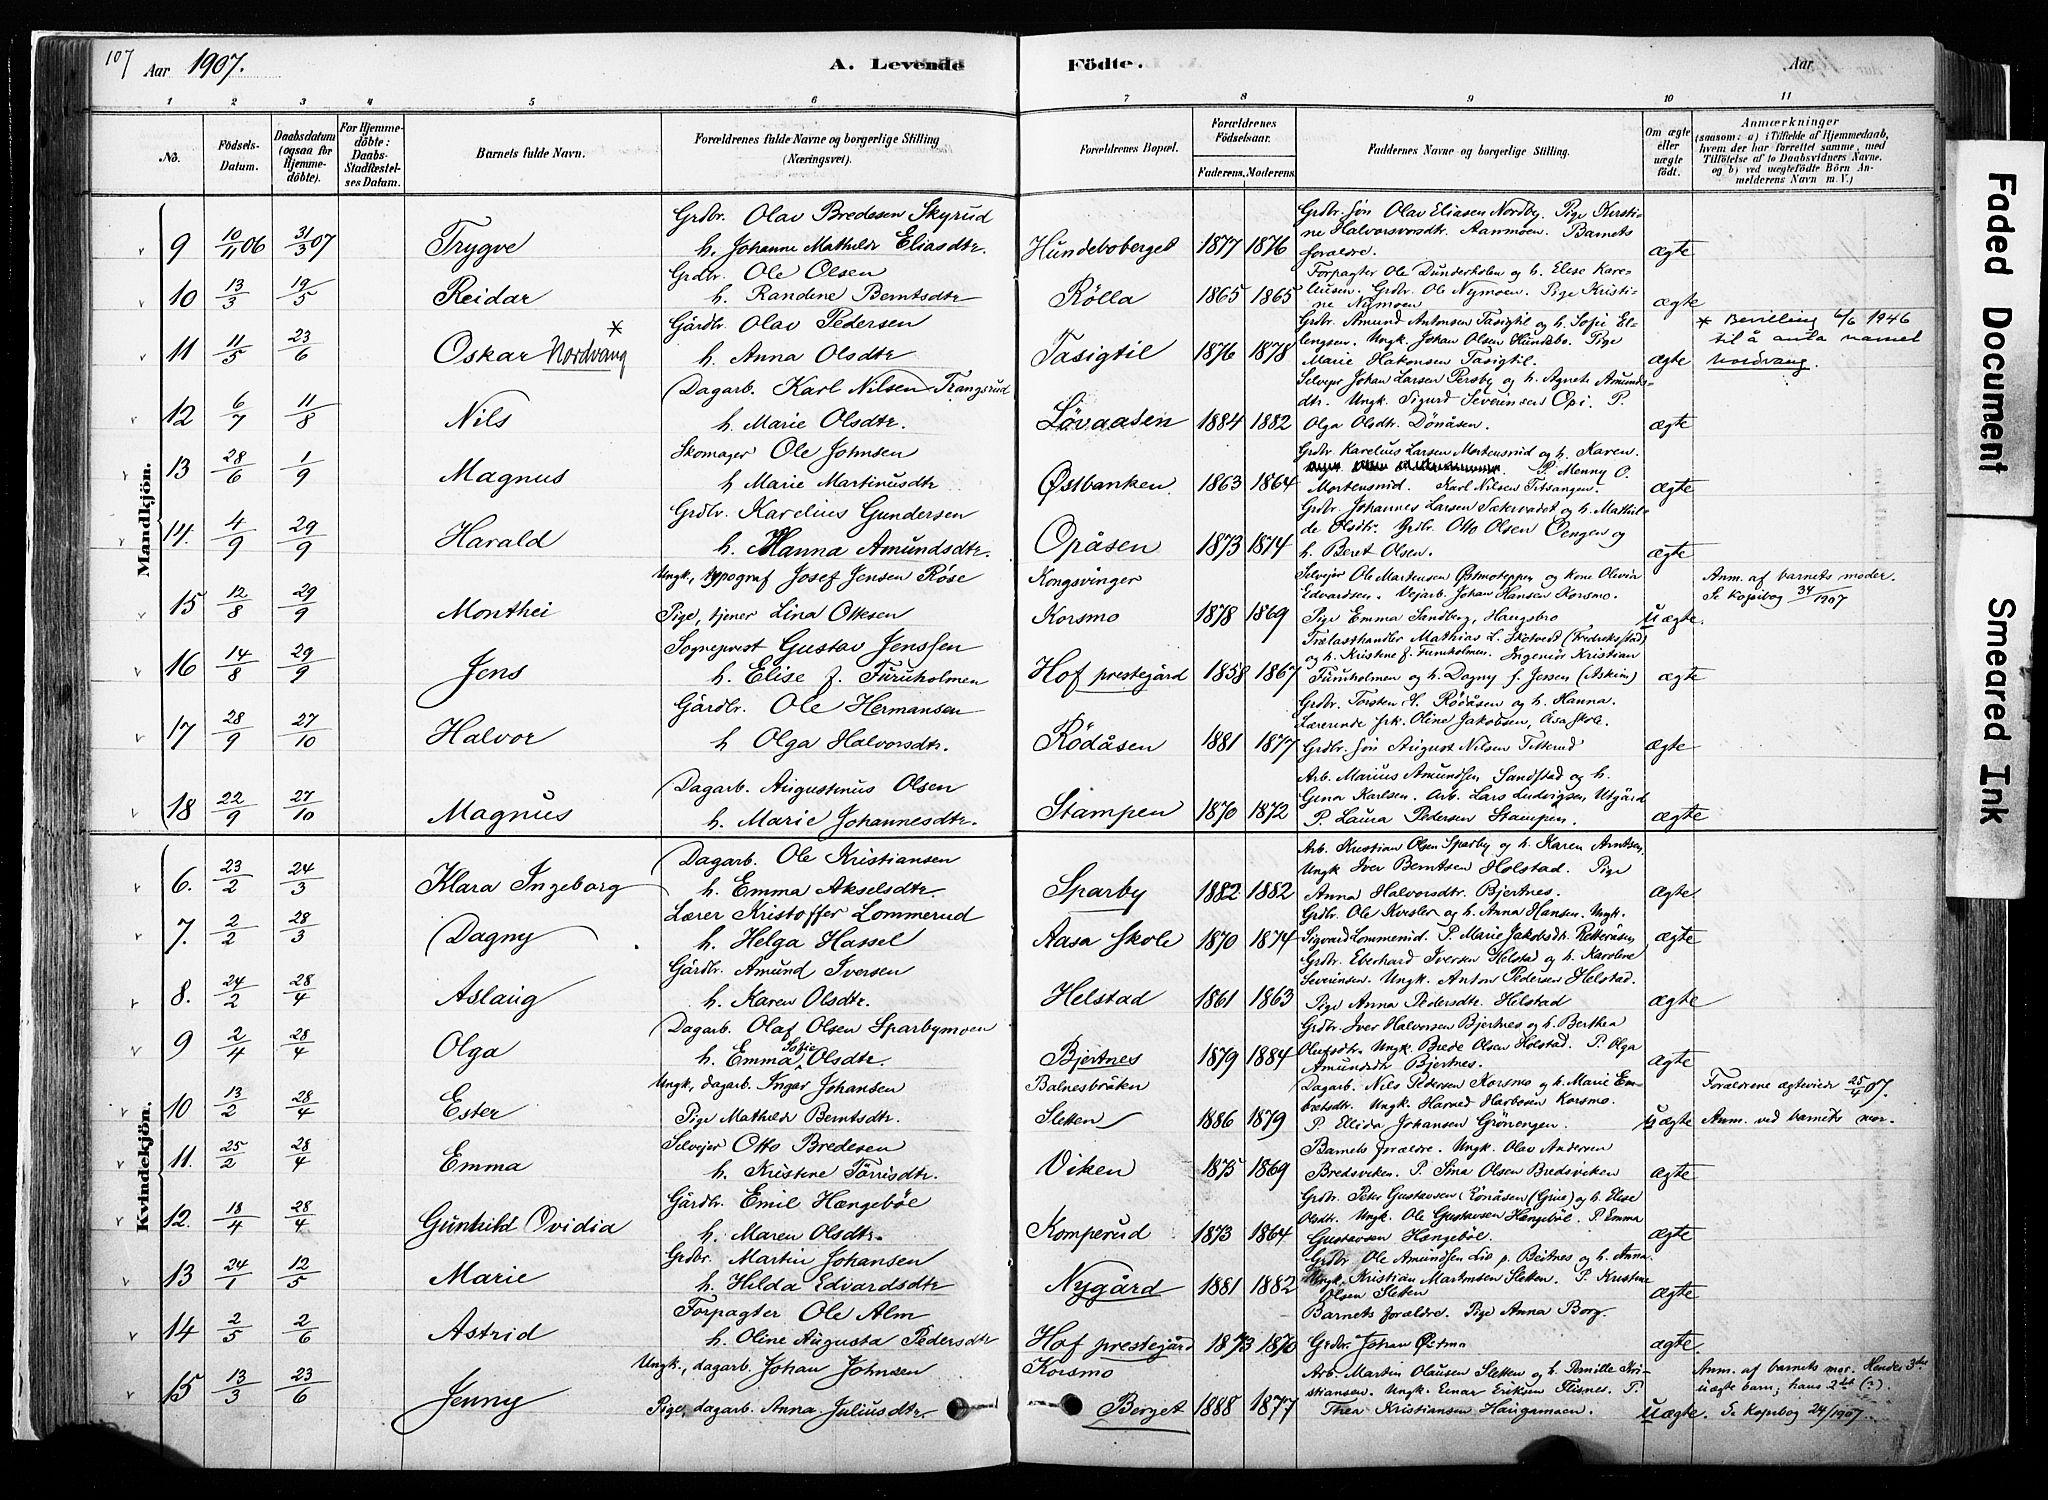 107 Aar 1907. A. Levende Födte. Aar
1 2 3 4 5 6 7 8 9 10 11
No. Födsels-Datum. Daabsdatum (ogsaa for Hjemmedöbte). For Hjemmedöbte: Daabs-Stadfæstelses Datum. Barnets fulde Navn. Forældrenes fulde Navne og borgerlige Stilling (Næringsvei). Forældrenes Bopæl. Forældrenes Födselsaar. Faderens. Moderens. Faddernes Navne og borgerlige Stilling. Om ægte eller uægte födt. Anmærkninger (saasom: a) i Tilfælde af Hjemmedaab, hvem der har forrettet samme, med Tilföielse af to Daabsvidners Navne, og b) ved uægtefödte Börn Anmelderens Navn m. V.)
Mandkjön.
9 10/11 06 31/3 07 Trygve Grdbr. Olav Bredesen Skyrud h. Johanne Mathilde Eliasdtr. Hundeboberget 1877 1876 Grdbr. søn Olav Eliasen Nordby. Pige Kerstine Halvorsdtr. Aanmoen. Barnets forældre. ægte
10 13/3 19/5 Reidar Grdbr. Ole Olsen h. Randine Berntsdtr Rölla 1865 1865 Forpagter Ole Dunderholen og h. Elise Kareliusen. Grdbr. Ole Nymoen. Pige Kristine Nymoen ægte
11 11/5 23/6 Oskar Nordvang * Gårdbr. Olav Pedersen h. Anna Olsdtr Tasigtil 1876 1878 Grdbr. Amund Antonsen Tasigtil og h. Sofie Ellengsen. Ungk. Johan Olsen Hundebo. Pige Marie Hakonsen Tasigtil. ægte * Bevilling 6/6 1946 til å anta navnet Nordvang.
12 6/7 11/8 Nils Dagarb. Karl Nilsen Trangsrud h. Marie Olsdtr. Løvaasen 1884 1882 Selveier Johan Larsen Persby og h. Agnete Amundsdtr. Ungk. Sigurd Severinsen Opi. P. Olga Olsdtr. Dönåsen. ægte
13 28/6 1/9 Magnus Skomager Ole Johnsen h. Marie Martinusdtr Østbanken 1863 1864 Grdbr Karelius Larsen Mortensrud og h. Karen. P. Menny O. Mortensrud. Karl Nilsen Titsangen. ægte
14. 4/9 29/9 Harald Grdbr. Karelius Gundersen h. Hanna Amundsdtr. Opåsen 1873 1874 Grdbr. Johannes Larsen Sækvadet og h. Mathilde Olsdtr. Grdbr. Otto Olsen Oengen og h. Beret Olsen. ægte
15 12/8 29/9 Monthei Ungk., typograf Josef Jensen Røse Pige, tjener Lina Ottesen Kongsvinger Korsmo 1878 1869 Selvejer Ole Martensen Østmoteppen og kone Olivia Edvardsen. Vejarb. Johan Hansen Korsmo. Pige Emma Sandberg, Haugsbro uægte. Anm. af barnets moder. Se Kopibog 34/1907
16 14/8 29/9 Jens Sogneprest Gustav Jenssen h. Elise f. Furuholmen Hof prestegård 1858 1867 Trælasthandler Mathias L. Skotvedt (Fredrikstad) og h. Kristine f. Furuholmen. Ingeniör Kristian Furuholmen og h. Dagny f. Jessen (Askim) ægte
17 28/9 27/10 Halvor Gårdbr. Ole Hermansen h. Olga Halvorsdtr. Rödåsen 1881 1877 Grdbr. Torsten G. Rödåsen og h. Hanna. Lærerinde frk. Oline Jakobsen, Åsa skole. Grdbr. søn August Nilsen Titterud ægte
18 22/9 27/10 Magnus Dagarb. Augustinus Olsen h. Marie Johannesdtr. Stampen 1870 1872 Arb. Marius Amundsen Sandstad og h. Gena Karlsen. Arb. Lars Ludvigsen Utgård P. Laura Pedersen Stampen. ægte
Kvindekjön.
6. 23/2 24/3 Klara Ingeborg Dagarb. Ole Kristiansen h. Emma Akselsdtr. Sparby 1882 1882 Arb. Kristian Olsen Sparby og h. Karen Arntsen. Ungk Iver Berntsen Holstad. Pige Anna Halvorsdtr. Bjertnes. ægte
7. 2/2 28/3 Dagny Lærer Kristoffer Lommerud h. Helga Hassel Aasa Skole 1870 1874 Grdbr. Ole Kvesler og h. Anna Hansen. Ungk. Sigvard Lommerud. P. Marie Jakobsdtr. Retteråsen ægte
8. 24/2 28/4 Aslaug Gårdbr. Amund Iversen h. Karen Olsdtr. Helstad 1861 1863 Grdbr. Eberhard Iversen Helstad og h. Karoline Severinsen. Ungk. Anton Pedersen Helstad. Pige Anna Pedersdtr. Helstad ægte
9 2/4 28/4 Olga Dagarb. Olaf Olsen Sparbymoen h. Emma Sofie Olsdtr. Bjertnes 1879 1884 Grdbr. Iver Halvorsen Bjertnes og h. Berthea Olufsdtr. Ungk. Brede Olsen Holstad. P. Olga Amundsdtr Bjertnes. ægte
10 13/2 28/4 Ester Ungk., dagarb. Ingar Johansen Pige Mathilde Berntsdtr. Balnesbråten Sletten 1886 1879 Dagarb. Nils Pedersen Korsmo og h. Marie Embretsdtr. Ungk. Harned Harbosen Korsmo. P. Ellida Johansen Grönengen. uægte Forældrene ægteviede 25/4 07. Anm. ved barnets mor.
11. 25/2 28/4 Emma Selvejer Otto Bredesen h. Kristine Törrisdtr. Viken 1875 1869 Barnets forældre. Ungk. Olav Andersen Bredsviken. P. Sina Olsen Bredsviken ægte
12. 18/4 28/4 Gunhild Ovidia Gårdbr. Emil Hængebøl h. Maren Olsdtr. Komperud 1873 1864 Grdbr. Peter Gustavsen Konåsen (Grue) og h. Elise Olsdtr. Ungk. Ole Gustavsen Hængebøl. P. Emma Gustavsen Hængebøl. ægte
13 24/1 12/5 Marie Grdbr. Martin Johansen h. Hilda Edvardsdtr Nygård 1881 1882 Grdbr Ole Amundsen Lio p. Beitnes og h. Anna. Ungk. Kristian Martinsen Sletten. P. Kristine Olsen Sletten ægte
14 2/5 2/6 Astrid Forpagter Ole Alm h. Oline Augusta Pedersdtr Hof prestegård 1873 1870 Barnets forældre. Pige Anna Borg. Grdbr. Johan Østmo ægte.
15 13/3 23/6 Jenny Ungk., dagarb. Johan Johnsen Pige, dagarb. Anna Juliusdtr. Korsmo Berget 1888 1877 Arb. Martin Olausen Sletten og h. Pernille Kristiansen. Ungk. Einar Eriksen Flisnes. P. Thea Kristiansen Haugamoen. uægte. Anm. af barnets mor. Hendes 3die uægte barn, hans 2det (?). Se Kopibog 24/1907.
Faded Document
Smeared Ink